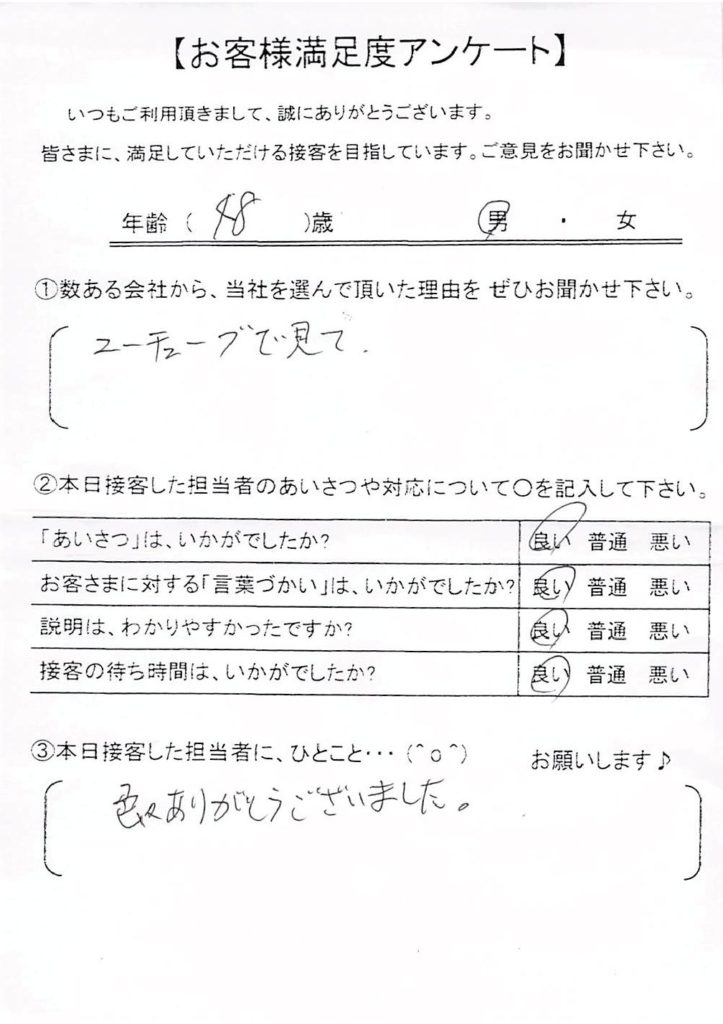 【お客様満足度アンケート】
いつもご利用頂きまして、誠にありがとうございます。
皆さまに、満足していただける接客を目指しています。ご意見をお聞かせ下さい。
年齢（ 48 ）歳 男 ・ 女
①数ある会社から、当社を選んで頂いた理由を ぜひお聞かせ下さい。
ユーチューブで見て.
②本日接客した担当者のあいさつや対応について〇を記入して下さい。
「あいさつ」は、いかがでしたか? 良い 普通 悪い
お客さまに対する「言葉づかい」は、いかがでしたか? 良い 普通 悪い
説明は、わかりやすかったですか? 良い 普通 悪い
接客の待ち時間は、いかがでしたか? 良い 普通 悪い
③本日接客した担当者に、ひとこと・・・（^o^） お願いします♪
色々ありがとうございました。